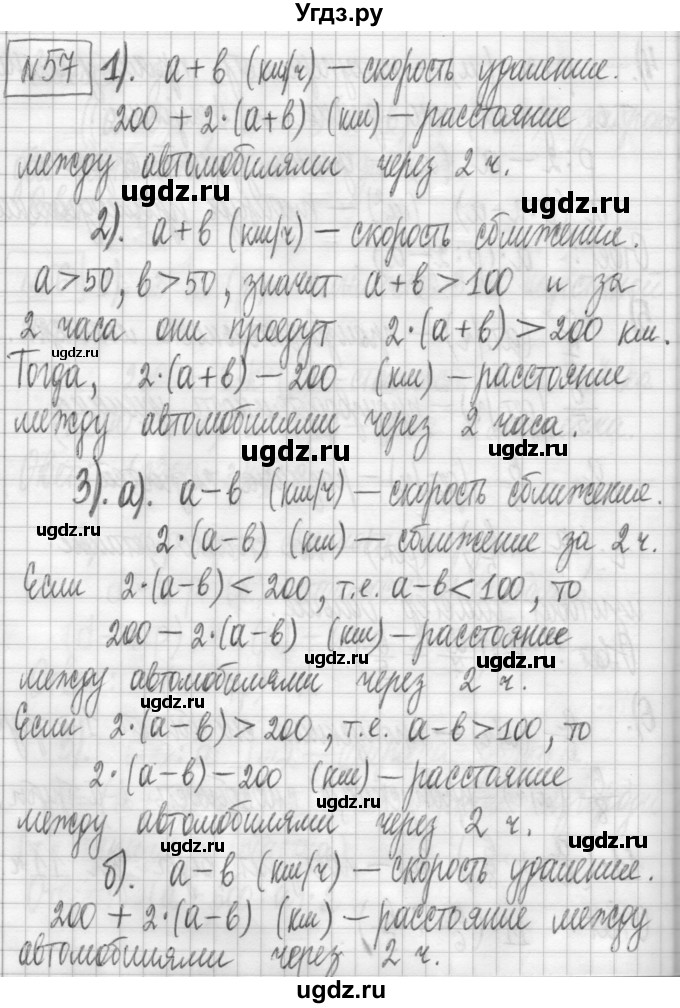 Угдз.ру
№57 1). a+в (км/ч) – скорость удаление.
200 + 2·(a+в) (км) – расстояние
между автомобилями через 2 ч.
ugdz.ru
ugdz.ru
2). a+в (км/ч) – скорость сближения.
a>50, в>50, значит a+в>100 и за
2 часа они проедут 2·(a+в)>200 км.
ugdz.ru
ugdz.ru
Тогда, 2·(a+в) – 200 (км) – расстояние
между автомобилями через 2 часа.
ugdz.ru
3). а). a–в (км/ч) – скорость сближения.
ugdz.ru
2·(a–в) (км) – сближение за 2 ч.
Если 2·(a–в) < 200, т.е. a–в < 100, то
200 – 2·(a–в) (км) – расстояние
ugdz.ru
ugdz.ru
между автомобилями через 2 ч.
ugdz.ru
Если 2·(a–в) > 200, т.е. a–в > 100, то
2·(a–в) – 200 (км) – расстояние
ugdz.ru
между автомобилями через 2 ч.
ugdz.ru
ugdz.ru
б). a–в (км/ч) – скорость удаления.
200 + 2·(a–в) (км) – расстояние между
ugdz.ru
автомобилями через 2 ч.
ugdz.ru